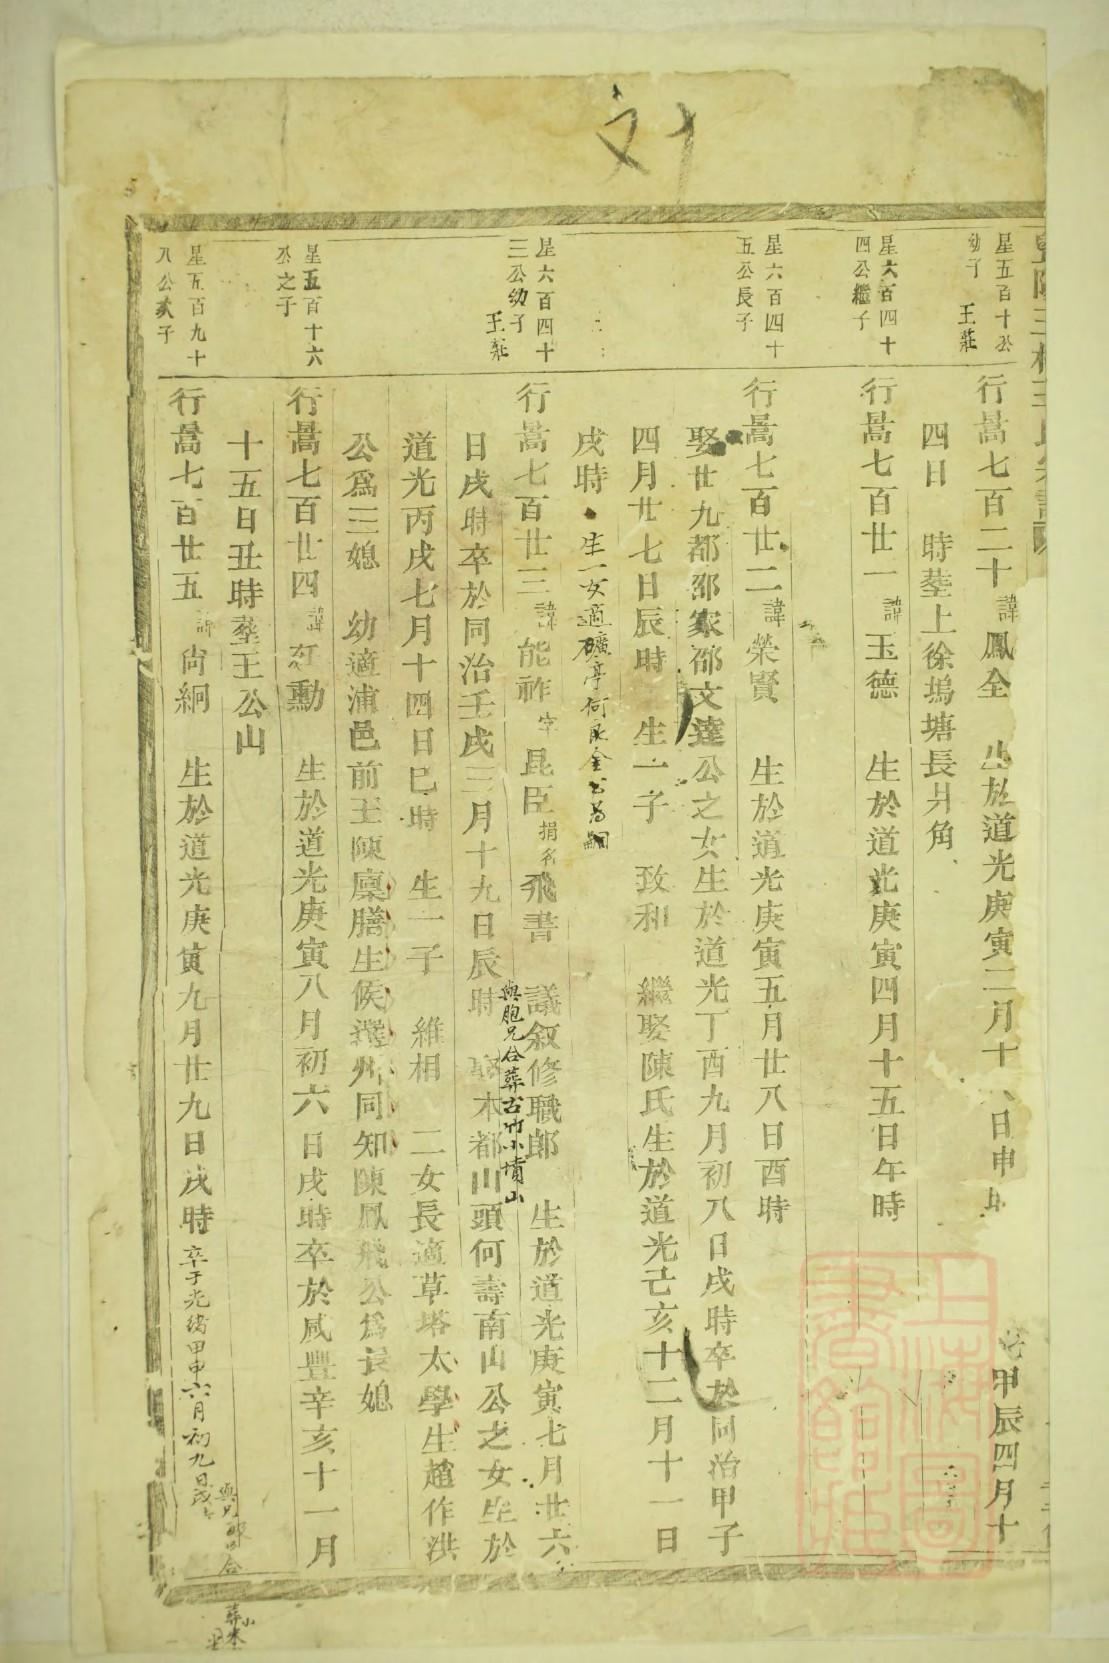 文十
星五百十公
幼子 王莊
行暠七百二十 諱鳳全 生於道光庚寅二月十八日申時
甲辰四月十
四日 時塟上徐塢塘長爿角
星六百四十
四公繼子
行暠七百廿一 諱玉德 生於道光庚寅四月十五日午時
星六百四十
五公長子
行暠七百廿二 諱榮賢 生於道光庚寅五月廿八日酉時
娶廿九都邵家邵文達公之女生於道光丁酉九月初八日戌時卒於同治甲子
四月廿七日辰時 生一子 致和 繼娶陳氏生於道光己亥十二月十一日
戌時 生一女適礦亭何 金公為嗣
星六百四十
三公幼子
王莊
行暠七百廿三 諱能祚 字昆臣 捐名飛書 議叙修職郎 生於道光庚寅七月廿六
與胞兄合葬古竹小墳山
日戌時卒於同治壬戌三月十九日辰時 娶本都山頭何壽南山公之女生於
道光丙戌七月十四日巳時 生一子 維相 二女長適草塔太學生趙作洪
公爲三媳 幼適浦邑前王陳廩膳生候選州同知陳鳳飛公爲長媳
星五百十六
公之子
行暠七百廿四 諱 勳 生於道光庚寅八月初六日戌時卒於咸豐辛亥十一月
十五日丑時塟王公山
星五百九十
八公次子
行暠七百廿五 諱尙絅 生於道光庚寅九月廿九日戌時 卒于光緒甲申六月初九日戌
與兄 合
葬小
上海圖書館藏